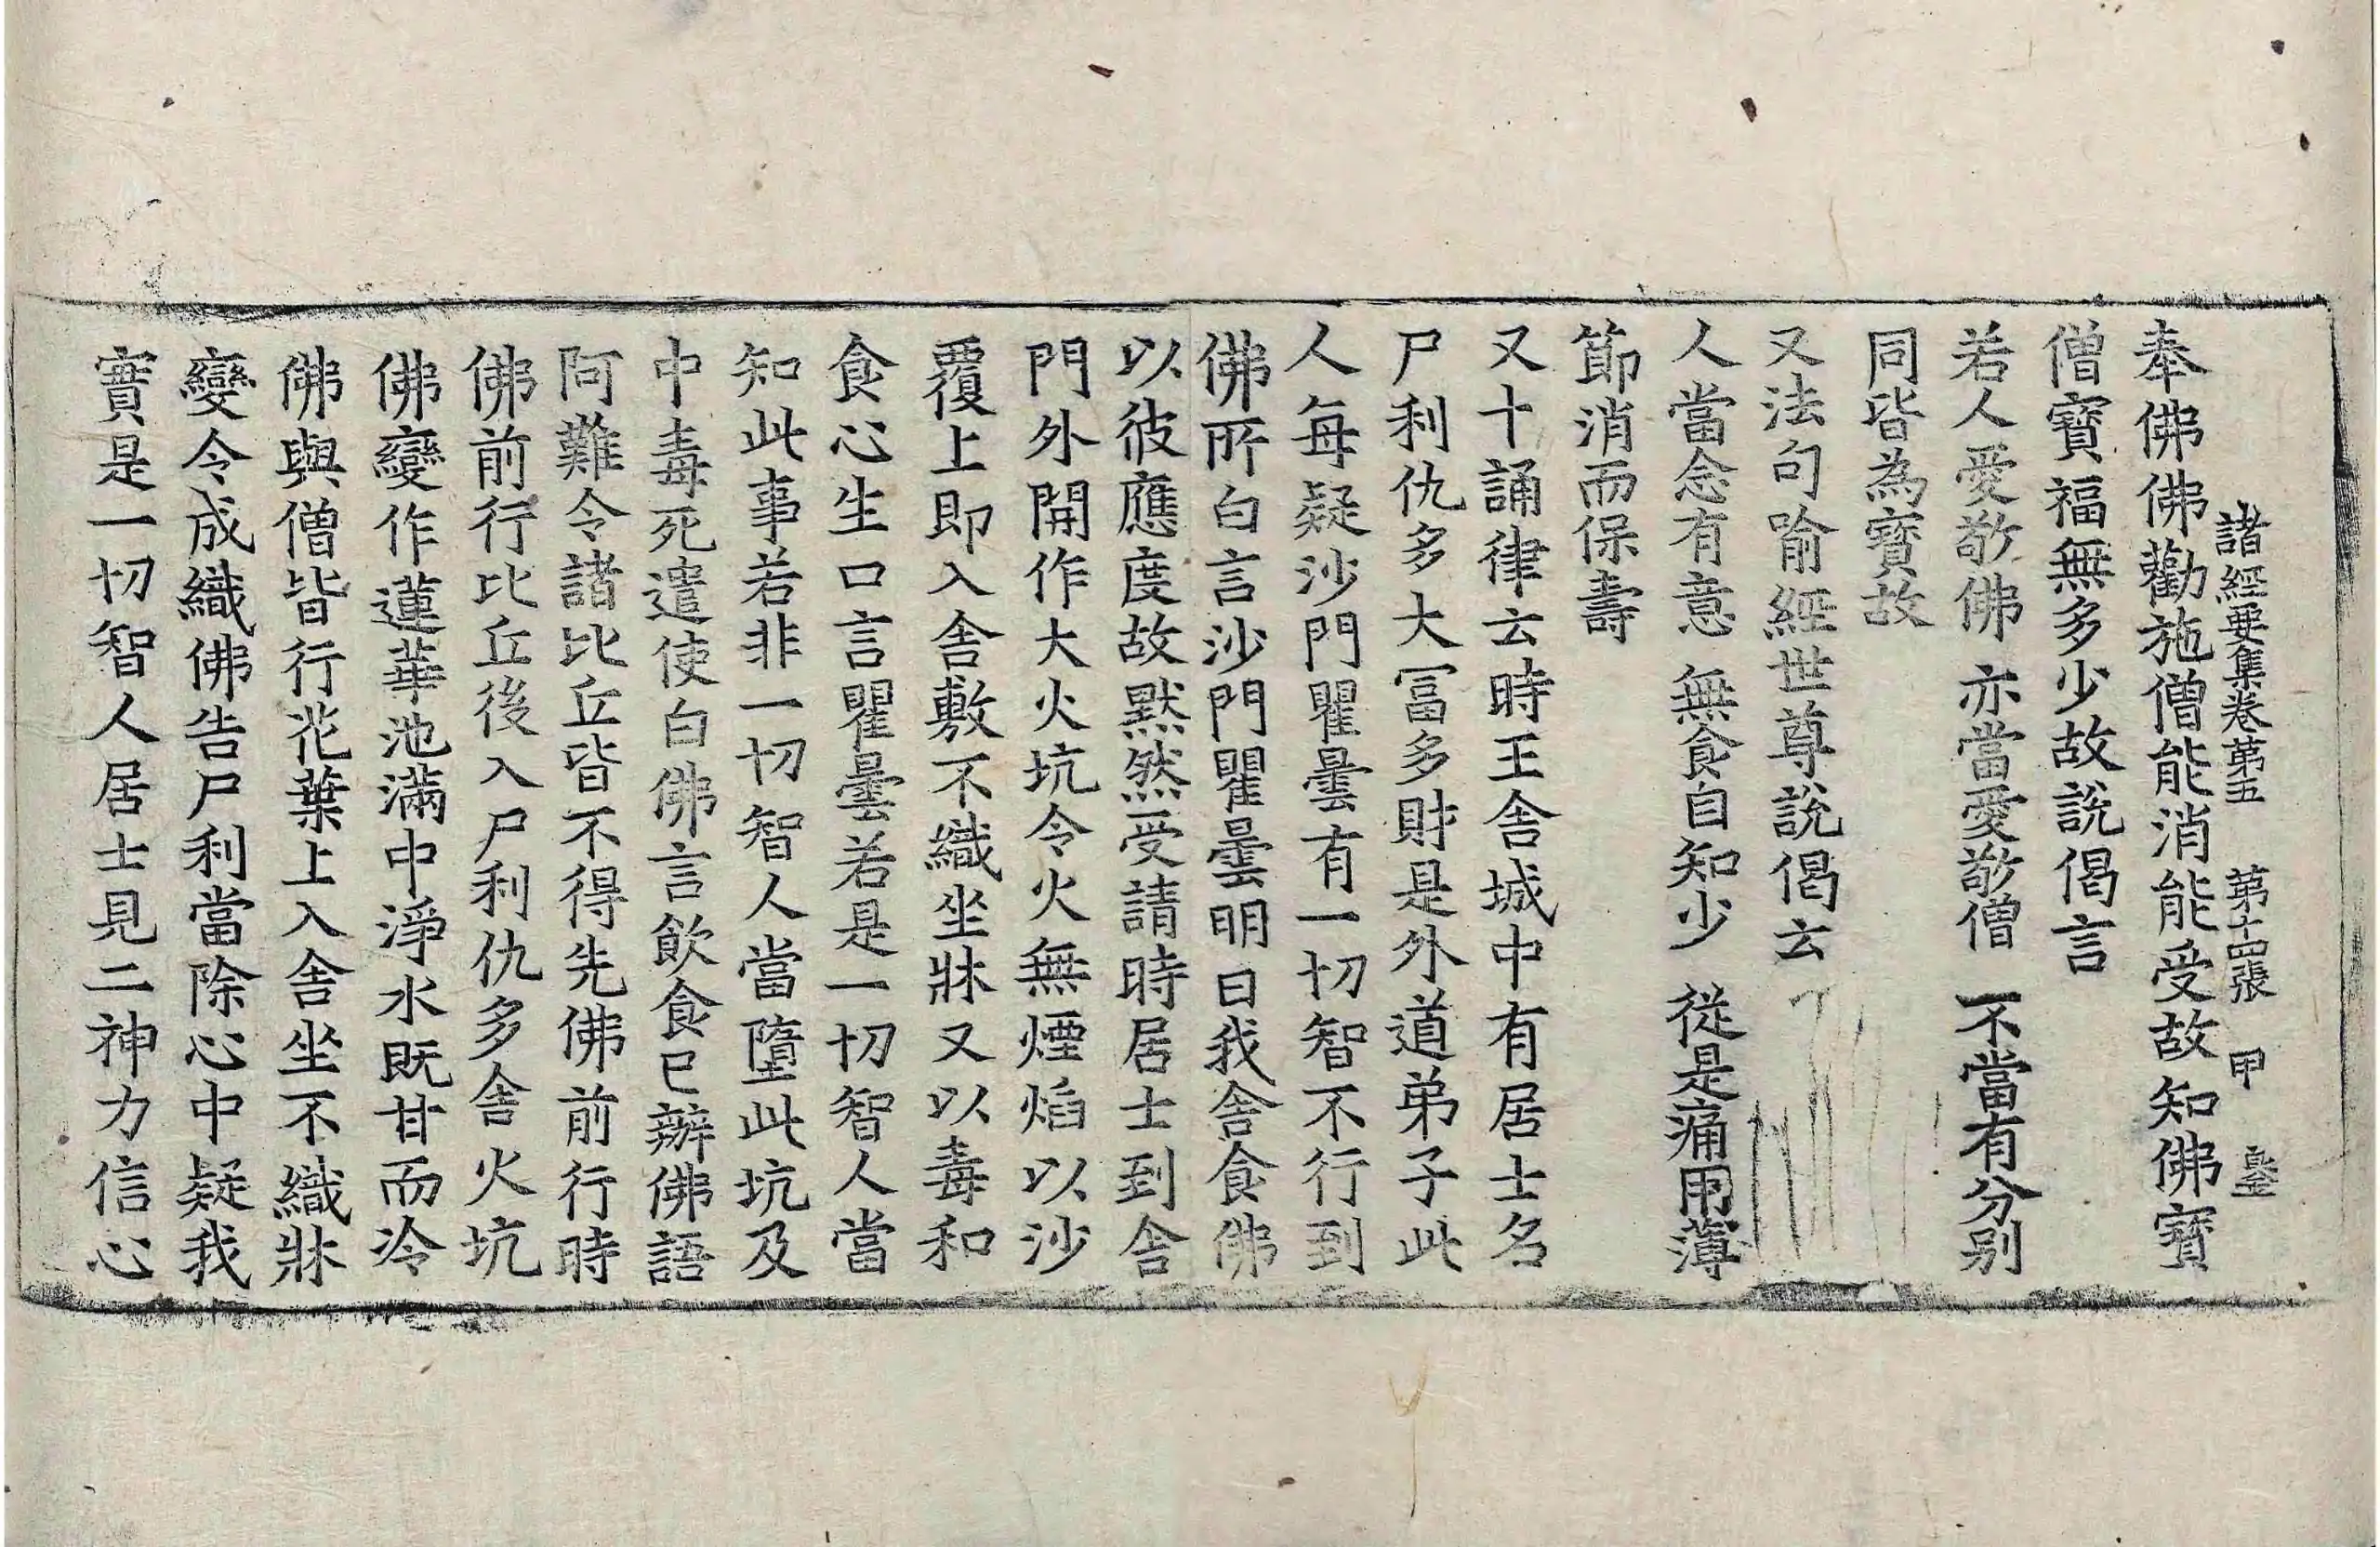 諸經要集卷第五 第十四張 甲
奉佛佛勸施僧能消能受故知佛寶
僧寶福無多少故說偈言
若人愛敬佛 亦當愛敬僧 不當有分別
同皆為寶故
又法句喻經世尊說偈云
人當念有意 無食自知少 從是痛用薄
節消而保壽
又十誦律云時王舍城中有居士名
尸利仇多大冨多財是外道弟子此
人每疑沙門瞿曇有一切智不行到
佛所白言沙門瞿曇明日我舍食佛
以彼應度故黙然受請時居士到舍
門外開作大火坑令火無煙焰以沙
覆上即入舍敷不織坐牀又以毒和
食心生口言瞿曇若是一切智人當
知此事若非一切智人當墮此坑及
中毒死遣使白佛言飲食已辦佛語
阿難令諸比丘皆不得先佛前行時
佛前行比丘後入尸利仇多舍火坑
佛變作蓮華池滿中淨水既甘而冷
佛與僧皆行花葉上入舍坐不織牀
變令成織佛告尸利當除心中疑我
實是一切智人居士見二神力信心